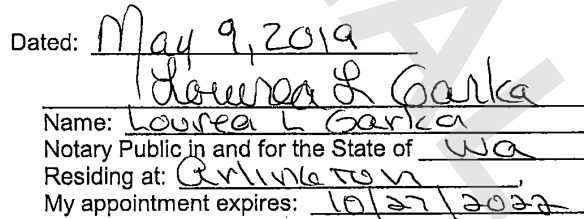 Dated: May 9, 2019
Lourea L Garka
Name: Lourea L Garka
Notary Public in and for the State of Wa
Residing at: Arlington,
My appointment expires: 10/27/2022